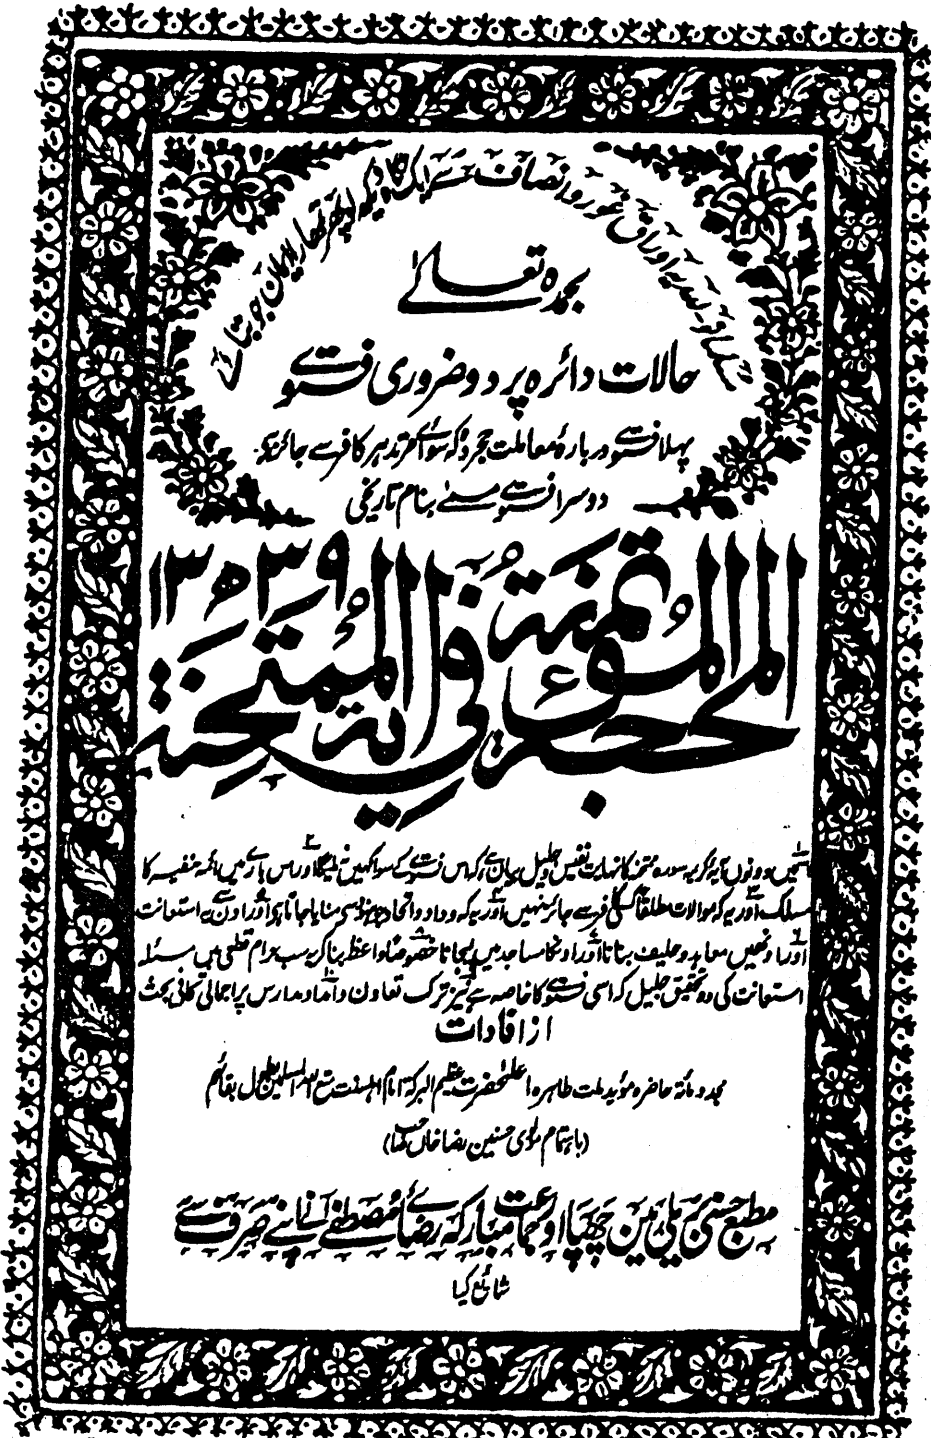 مسلمانو للہ یہ اوراق غور و انصاف سے ایک نگاہ دیکھ لو پھر تمھارا ایمان جو بتائے
بحمدہ تعالےٰ
حالات دائرہ پر دو ضروری فتوے
پہلا فتوے دربارۂ معاملت مجردہ کہ سوائے مرتد ہر کافر سے جائز ہے
دوسرا فتوے مسمے بنام تاریخی
المحجۃ المؤتمنۃ فی اٰیۃ الممتحنۃ
۱۳۳۹ھ
اسمیں دونوں آیہ کریمہ سورۂ ممتحنہ کا نہایت نفیس و جلیل بیان ہے کہ اس فتوے کے سوا کہیں نہ ملیگا اور اس بارے میں ائمہ حنفیہ کا
مسلک اور یہ کہ موالات مطلقاً کسی کافر سے جائز نہیں اور یہ کہ وداد و اتحاد منایا جاتا ہے اور اون سے استعانت
اور اونھیں معاہد و حلیف بنانا اور اونکا مساجد میں لیجانا خصوصاً واعظ بنا کر یہ سب حرام قطعی ہیں مسئلہ
استعانت کی وہ تحقیق جلیل کہ اسی فتوے کا خاصہ ہے نیز ترک تعاون و امداد مدارس پر اجمالی کافی بحث
از افادات
مجدد مائۃ حاضرہ مؤید ملت طاہرہ اعلیٰحضرت عظیم البرکۃ امام اہلسنت متع اللہ المسلمین بطول بقائہم
(باہتمام مولوی حسنین رضا خاں صاحب)
مطبع حسنی بریلی میں چھپا اور جماعت مبارکہ رضائے مصطفےٰ نے اپنے صرف سے
شائع کیا